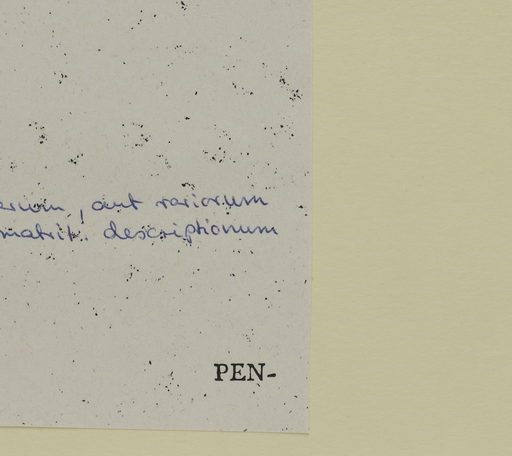 erum, aut rariorum
matrit. descriptionum
PEN-